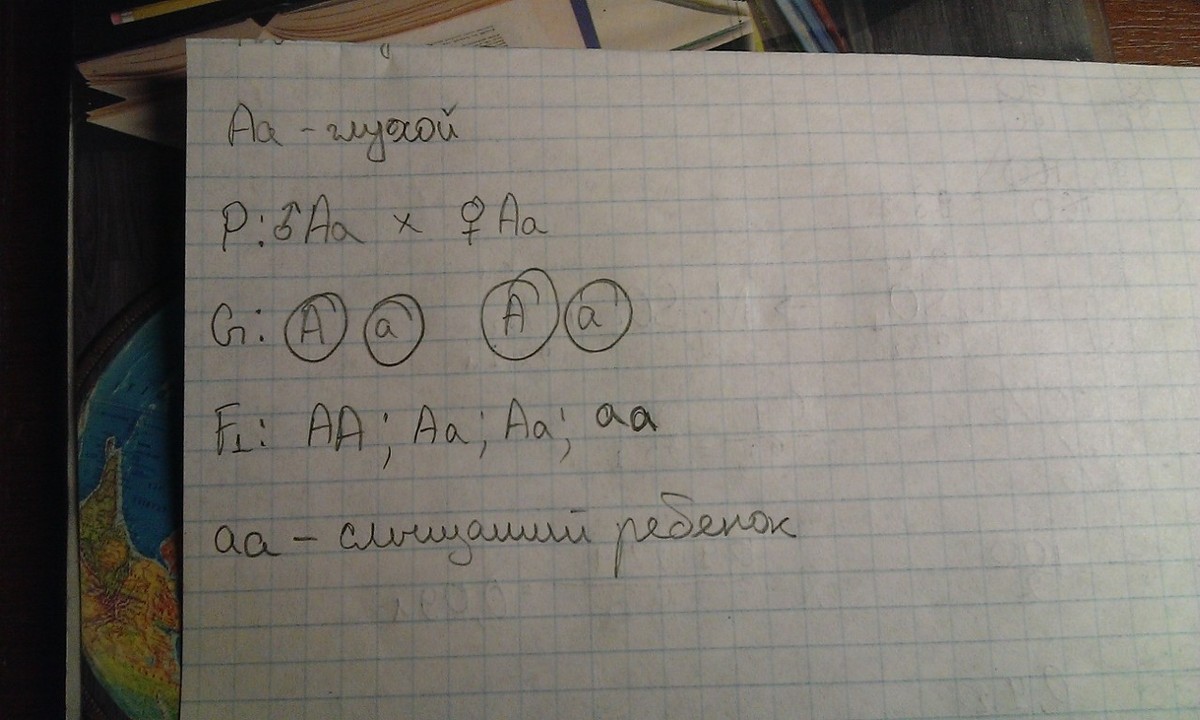 Aa - глухой
P: ♂Aa x ♀Aa
G: A a A a
F1: AA; Aa; Aa; aa
aa - слышащий ребенок